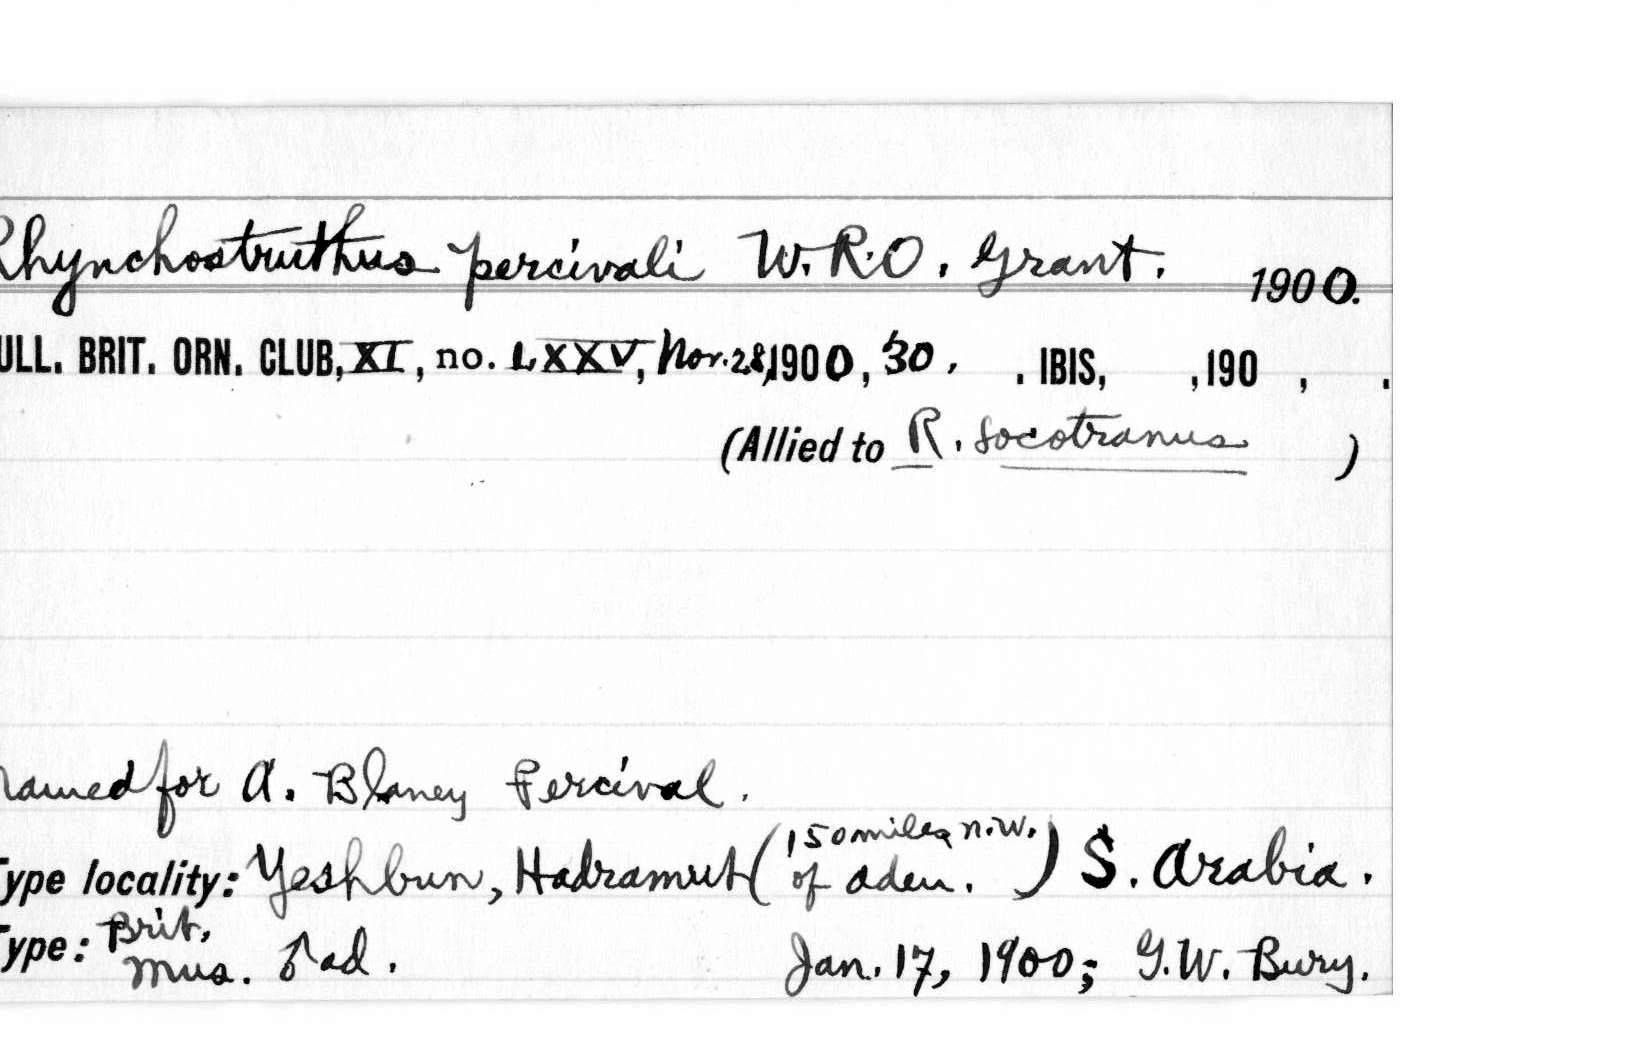 Rhynchostruthus percivali W.R.O. Grant. 1900.
ULL. BRIT. ORN. CLUB, XI, no. LXXV, Nov. 28, 1900, 30, . IBIS, , 190 , .
(Allied to R. socotranus )
named for A. Blaney Percival.
Type locality: Yeshbun, Hadramut (150 miles n.w. of Aden.) S. Arabia.
Type: Brit. Mus. ♂ ad. Jan. 17, 1900; G.W. Bury.